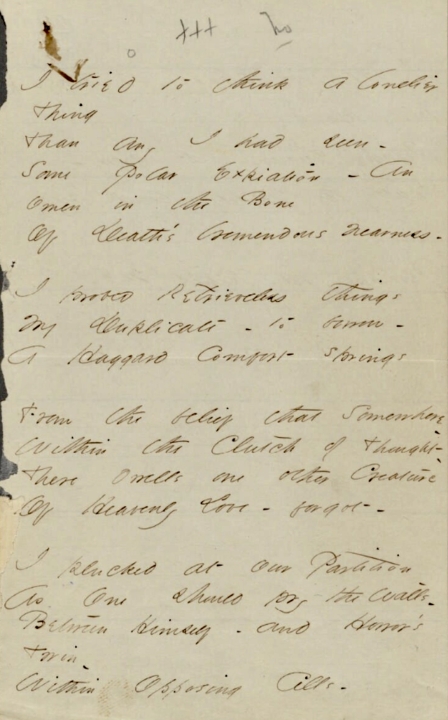 +++
I tried to think a lonelier
thing
than any I had seen -
Some Polar Expiation - An
Omen in the Bone
Of Death's tremendous nearness -
I probed Retrieveless things
My Duplicate - to borrow -
A Haggard Comfort springs
From the belief that Somewhere
Within the Clutch of thought
There dwells one other Creature
Of Heavenly Love - forgot -
I plucked at our Partition
As One should pry the Walls -
Between Himself - and Horror's
Twin
Within Opposing Cells -